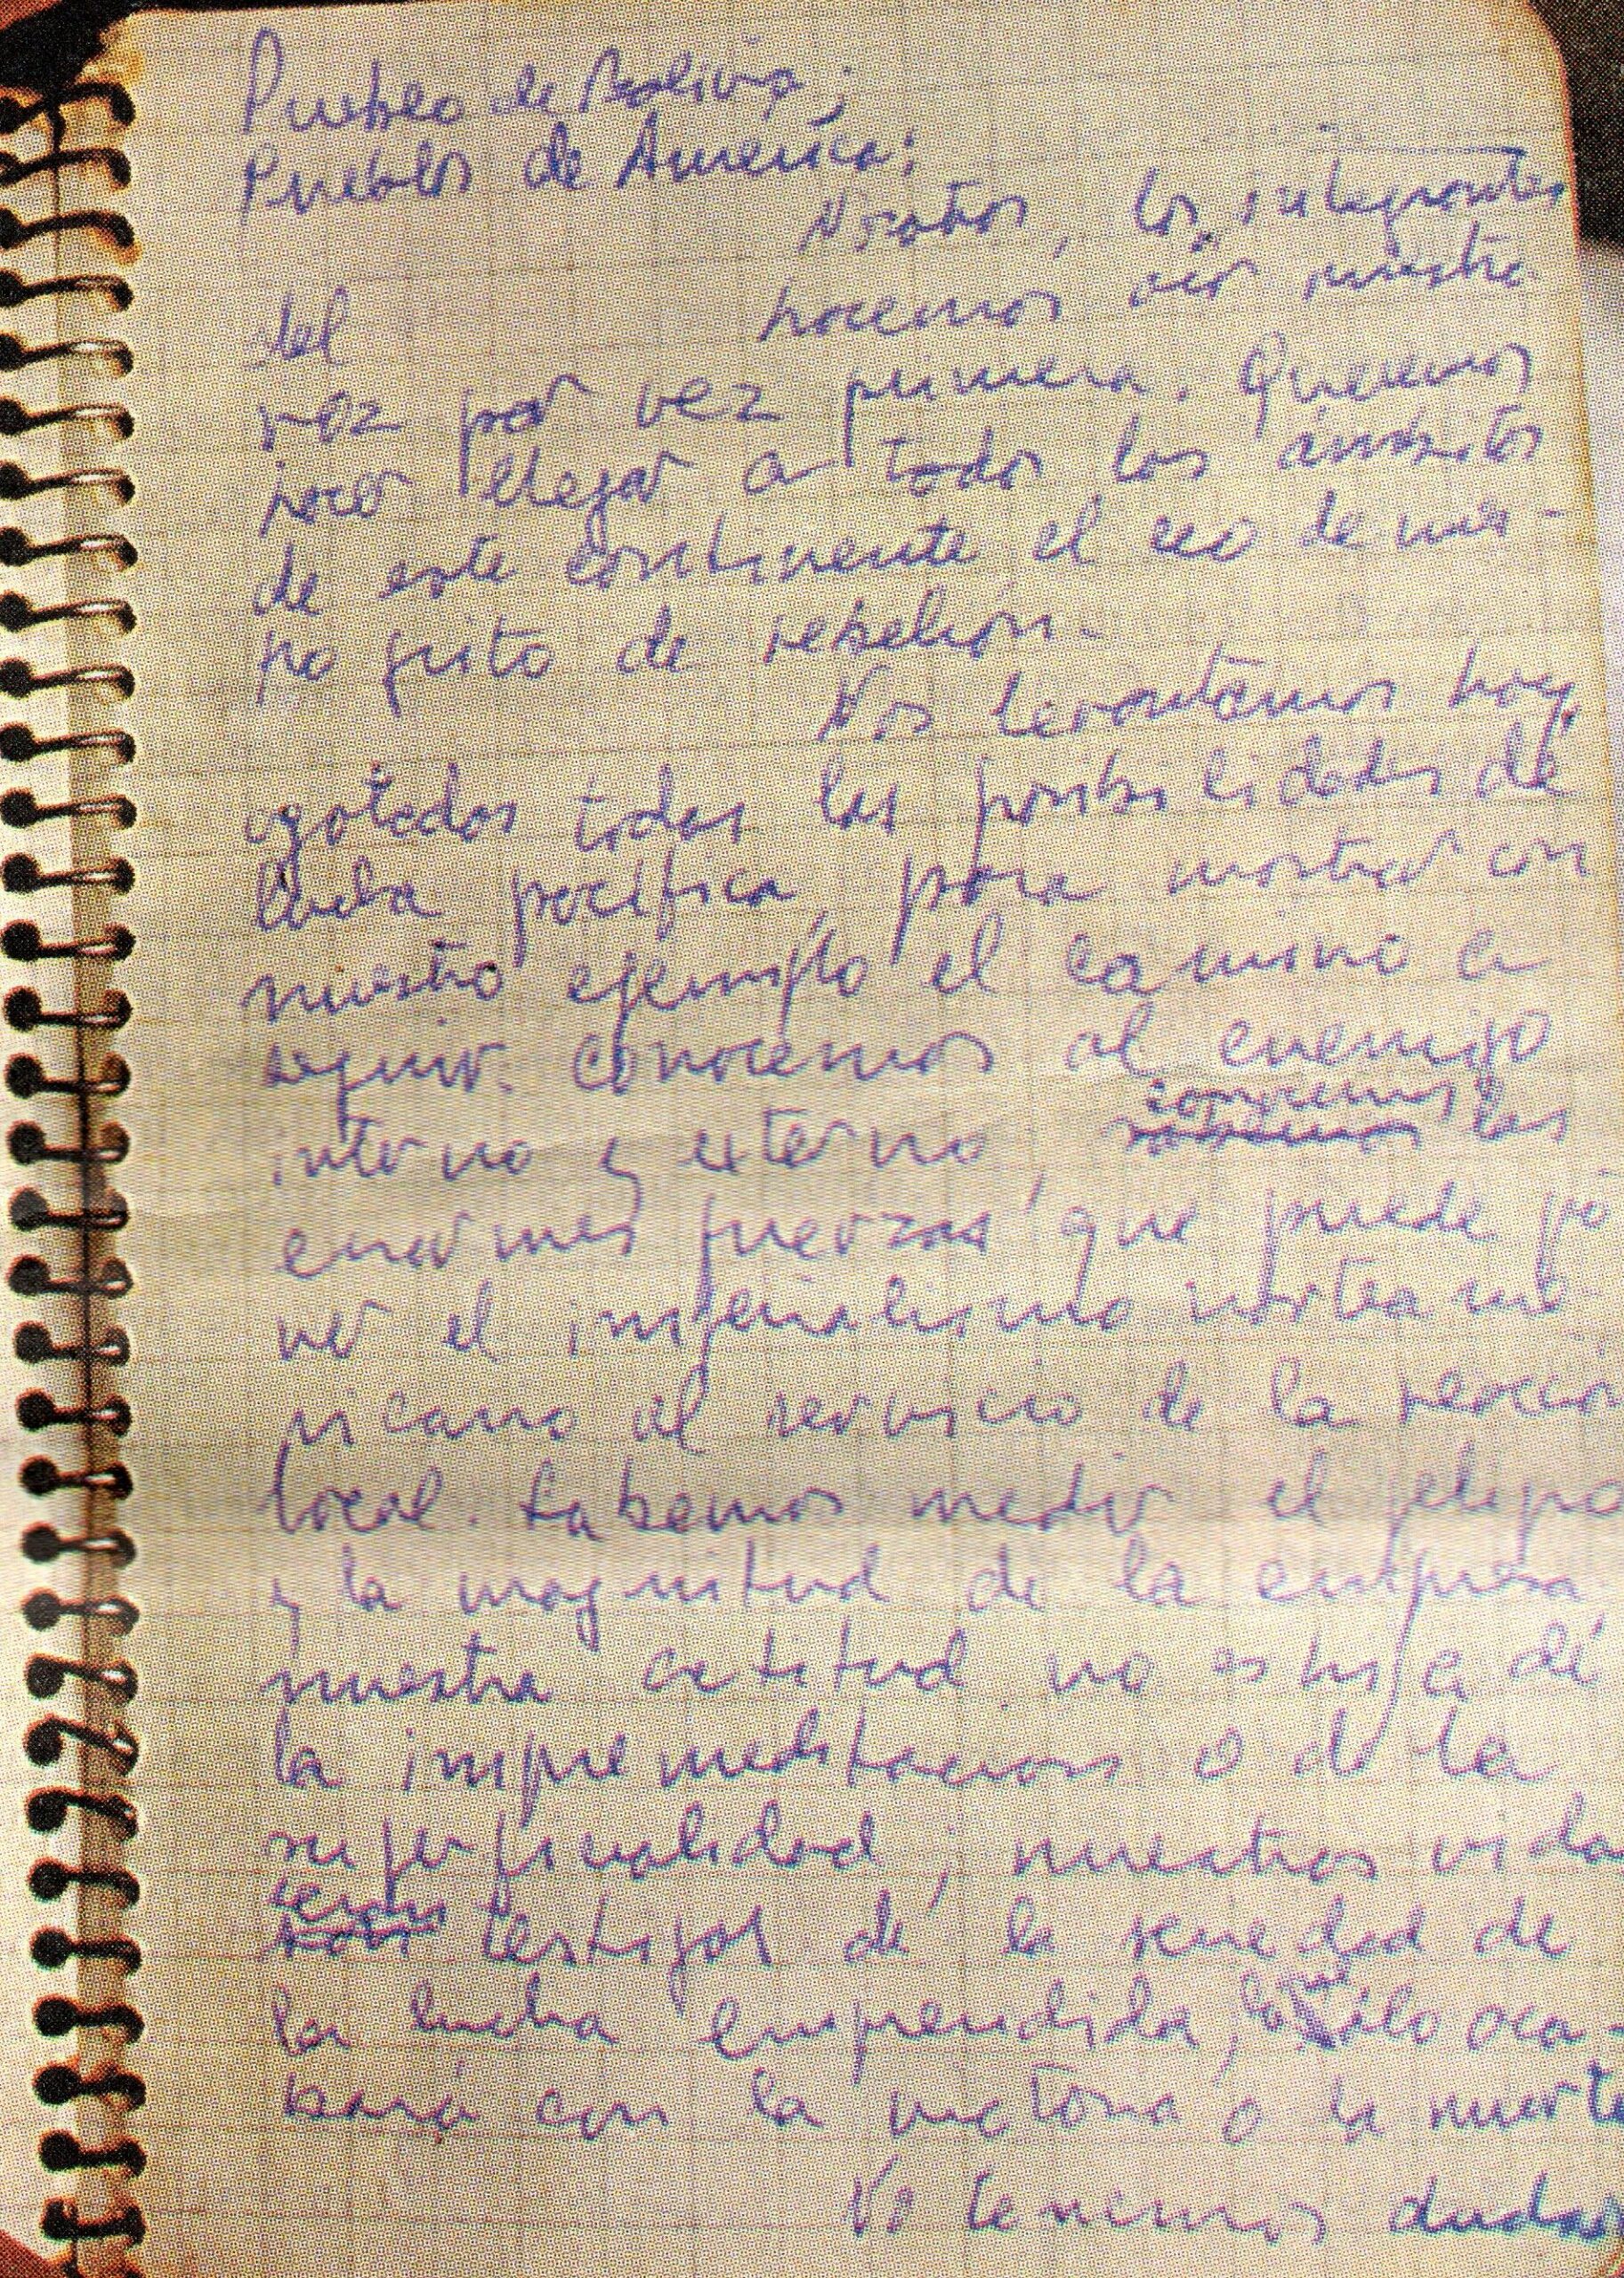 Pueblo de Bolivia;
Pueblos de América:
Nosotros, los integrantes
del hacemos oir nuestra
voz por vez primera. Queremos
hacer llegar a todos los ámbitos
de este continente el eco de nues-
tro grito de rebelión.
Nos levantamos hoy,
agotadas todas las posibilidades de
lucha pacífica, para mostrar con
nuestro ejemplo el camino a
seguir. Conocemos al enemigo
conocemos
interno y externo, sabemos las
enormes fuerzas que puede po-
ner el imperialismo norteame-
ricano al servicio de la reacción
local. Sabemos medir el peligro
y la magnitud de la empresa
nuestra actitud no es hija de
la impremeditación o de la
superficialidad; nuestras vidas
serán
son testigos de la seriedad de
la lucha emprendida, la que sólo aca-
bará con la victoria o la muerte
No tenemos dudas